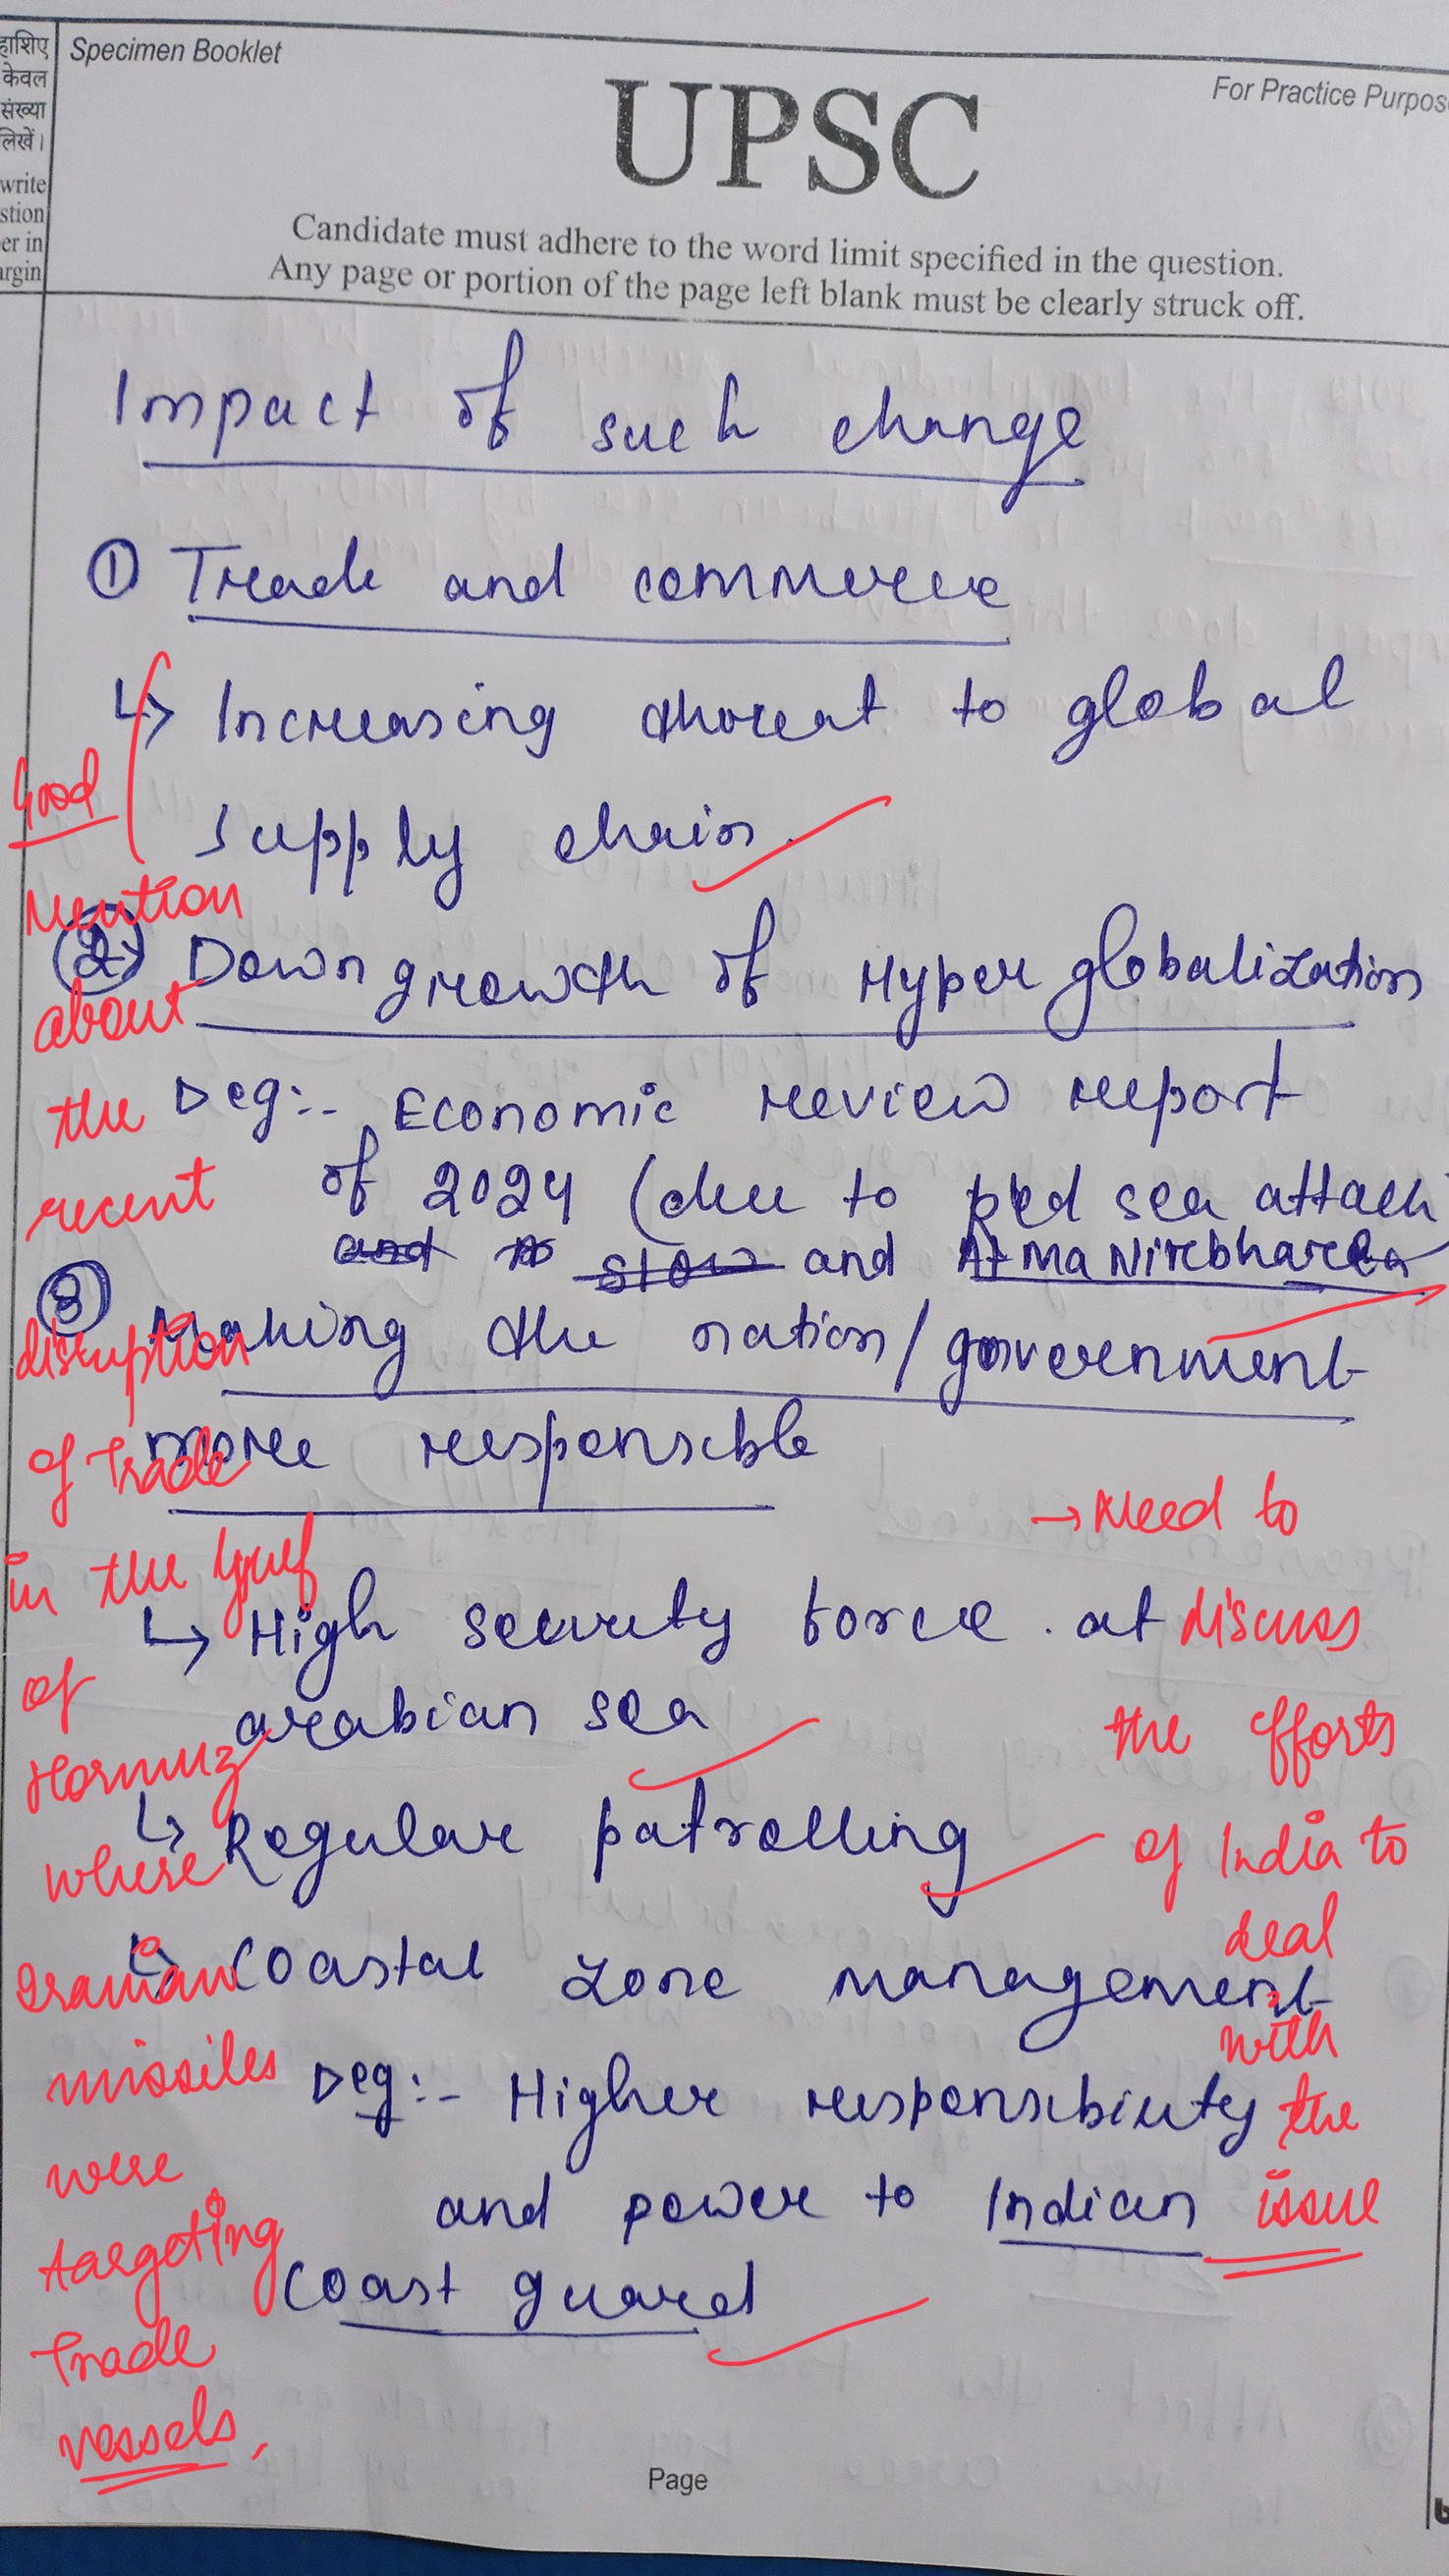 हाशिए
केवल
संख्या
लिखें।
write
stion
er in
argin
Specimen Booklet
For Practice Purpos
UPSC
Candidate must adhere to the word limit specified in the question.
Any page or portion of the page left blank must be clearly struck off.
Impact of such change
① Trade and commerce
↳ Increasing threat to global
supply chain.
② Down growth of Hyper globalization
eg:- Economic review report
of 2024 (due to Red sea attack
and slow and AtmaNirbhar
③ Making the nation/government
more responsible
↳ High security force at
arabian sea
↳ Regular patrolling
↳ Coastal zone management
eg:- Higher responsibility
and power to Indian
Coast guard
Good
Mention
about
the
recent
disruption
of Trade
in the Gulf
of
Hormuz
where
Iranian
missiles
were
targeting
Trade
vessels.
→ Need to
discuss
the efforts
of India to
deal
with
the
issue
Page